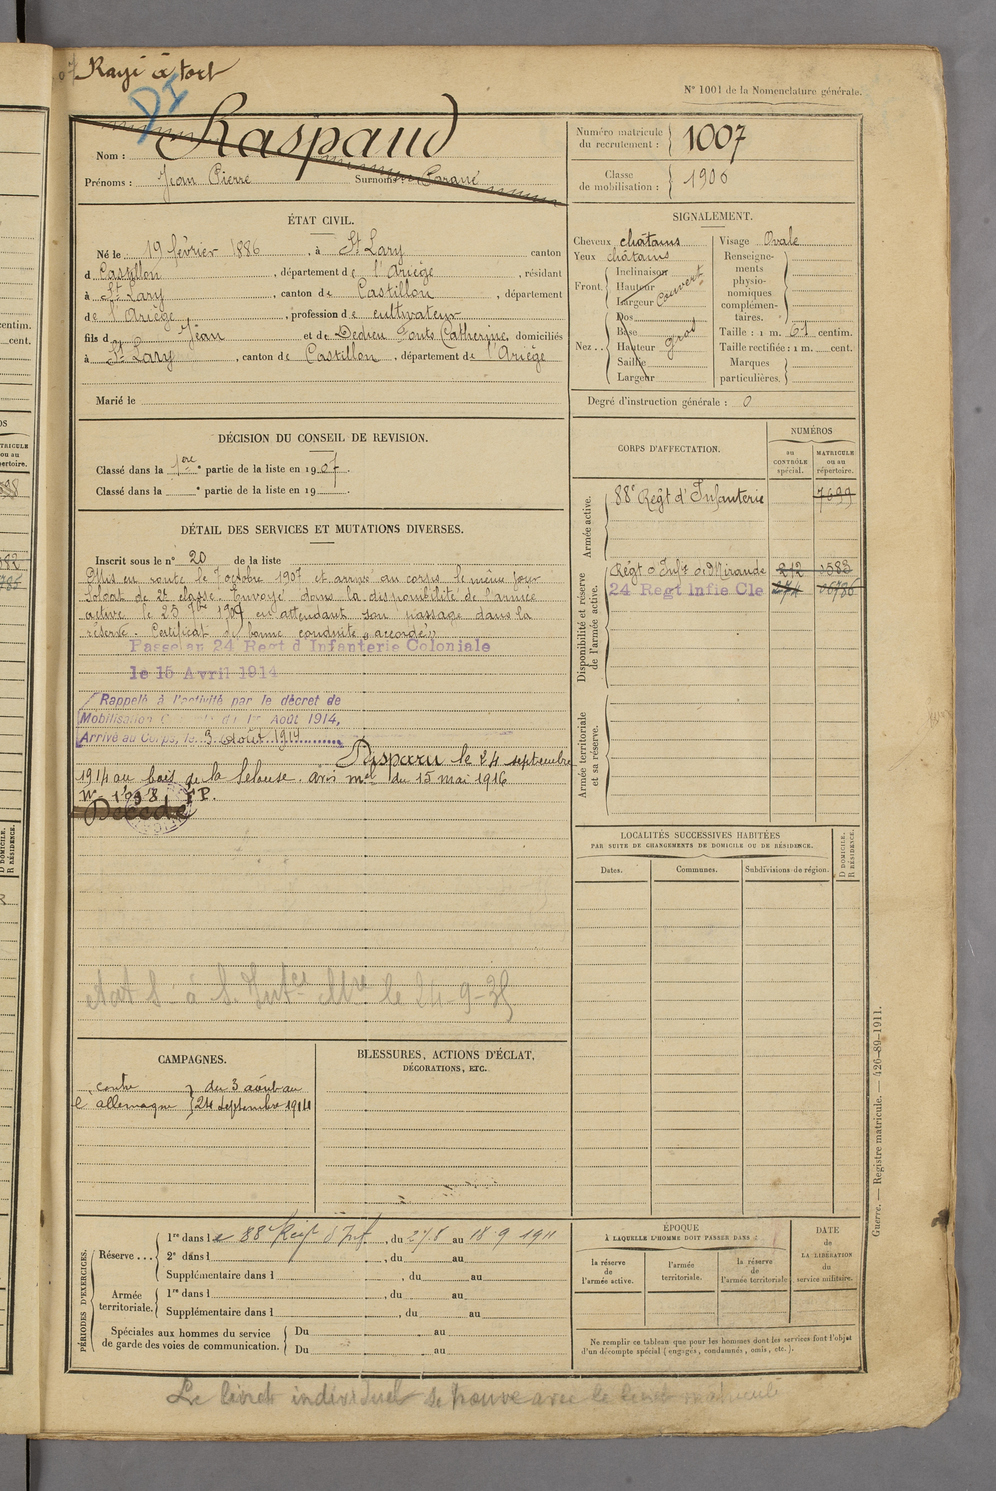 Rayé à tort
DI
N° 1001 de la Nomenclature générale.
Nom : Raspaud
Prénoms : Jean Pierre Surnoms :
Numéro matricule du recrutement : 1007
Classe de mobilisation : 1906
ÉTAT CIVIL.
Né le 19 février 1886, à St Lary canton
d Castillon, département de l'Ariège, résidant
à St Lary, canton de Castillon, département
de l'Ariège, profession de cultivateur
fils d Jean et de Dedieu Pouts Catherine, domiciliés
à St Lary, canton de Castillon, département de l'Ariège
Marié le
SIGNALEMENT.
Cheveux châtains
Yeux châtains
Front. Inclinaison Hauteur Largeur couvert
Nez... Dos Base Hauteur Saillie Largeur gros
Visage Ovale
Renseignements physionomiques complémentaires.
Taille : 1 m. 61 centim.
Taille rectifiée : 1 m. cent.
Marques particulières.
Degré d'instruction générale : 0
DÉCISION DU CONSEIL DE REVISION.
Classé dans la 1ère partie de la liste en 1907.
Classé dans la e partie de la liste en 19 .
DÉTAIL DES SERVICES ET MUTATIONS DIVERSES.
Inscrit sous le n° 20 de la liste
Mis en route le 7 octobre 1907 et arrivé au corps le même jour
Soldat de 2e classe. Envoyé dans la disponibilité de l'armée
active le 25 7bre 1909 en attendant son passage dans la
réserve. Certificat de bonne conduite "accordé"
Passé au 24 Regt d Infanterie Coloniale
le 15 Avril 1914
Rappelé à l'activité par le décret de
Mobilisation Générale du 1er Août 1914,
Arrivé au Corps, le 3 Août 1914
Disparu le 24 septembre
1914 au bois de la avis mel du 15 mai 1916
F.P.
Décédé
le 24-9-35
CORPS D'AFFECTATION.
NUMÉROS
au CONTRÔLE spécial.
MATRICULE ou au répertoire.
Armée active.
88e Regt d'Infanterie 7699
Disponibilité et réserve de l'armée active.
Régt d'Infie de Mirande 212 3583
24 Regt Infie Cle 274 06786
Armée territoriale et sa réserve.
LOCALITÉS SUCCESSIVES HABITÉES
PAR SUITE DE CHANGEMENTS DE DOMICILE OU DE RÉSIDENCE.
Dates. Communes. Subdivisions de région. D DOMICILE. R RÉSIDENCE.
CAMPAGNES.
contre l'allemagne du 3 août au 24 septembre 1914
BLESSURES, ACTIONS D'ÉCLAT,
DÉCORATIONS, ETC.
PÉRIODES D'EXERCICES.
Réserve... 1re dans le 88e Regt d'Inf. du 27 8 au 18 9 1911
2e dans l , du au
Supplémentaire dans l , du au
Armée territoriale. 1re dans l , du au
Supplémentaire dans l , du au
Spéciales aux hommes du service de garde des voies de communication. Du au
Du au
ÉPOQUE
À LAQUELLE L'HOMME DOIT PASSER DANS :
la réserve de l'armée active.
l'armée territoriale.
la réserve de l'armée territoriale
DATE de LA LIBÉRATION du service militaire.
Ne remplir ce tableau que pour les hommes dont les services font l'objet
d'un décompte spécial (engagés, condamnés, omis, etc.).
Guerre. — Registre matricule. — 426-89-1911.
Le livret individuel se trouve avec le livret matricule